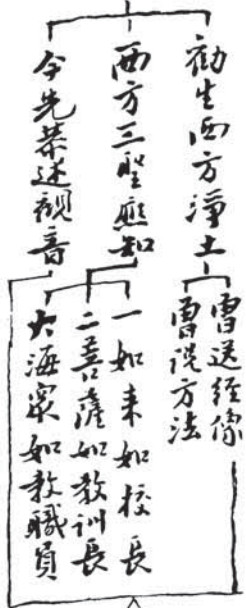 勸生西方淨土
曾送經像
曾說方法
西方三聖應知
一如来如校長
二菩薩如教訓長
大海眾如教職員
今先恭述觀音